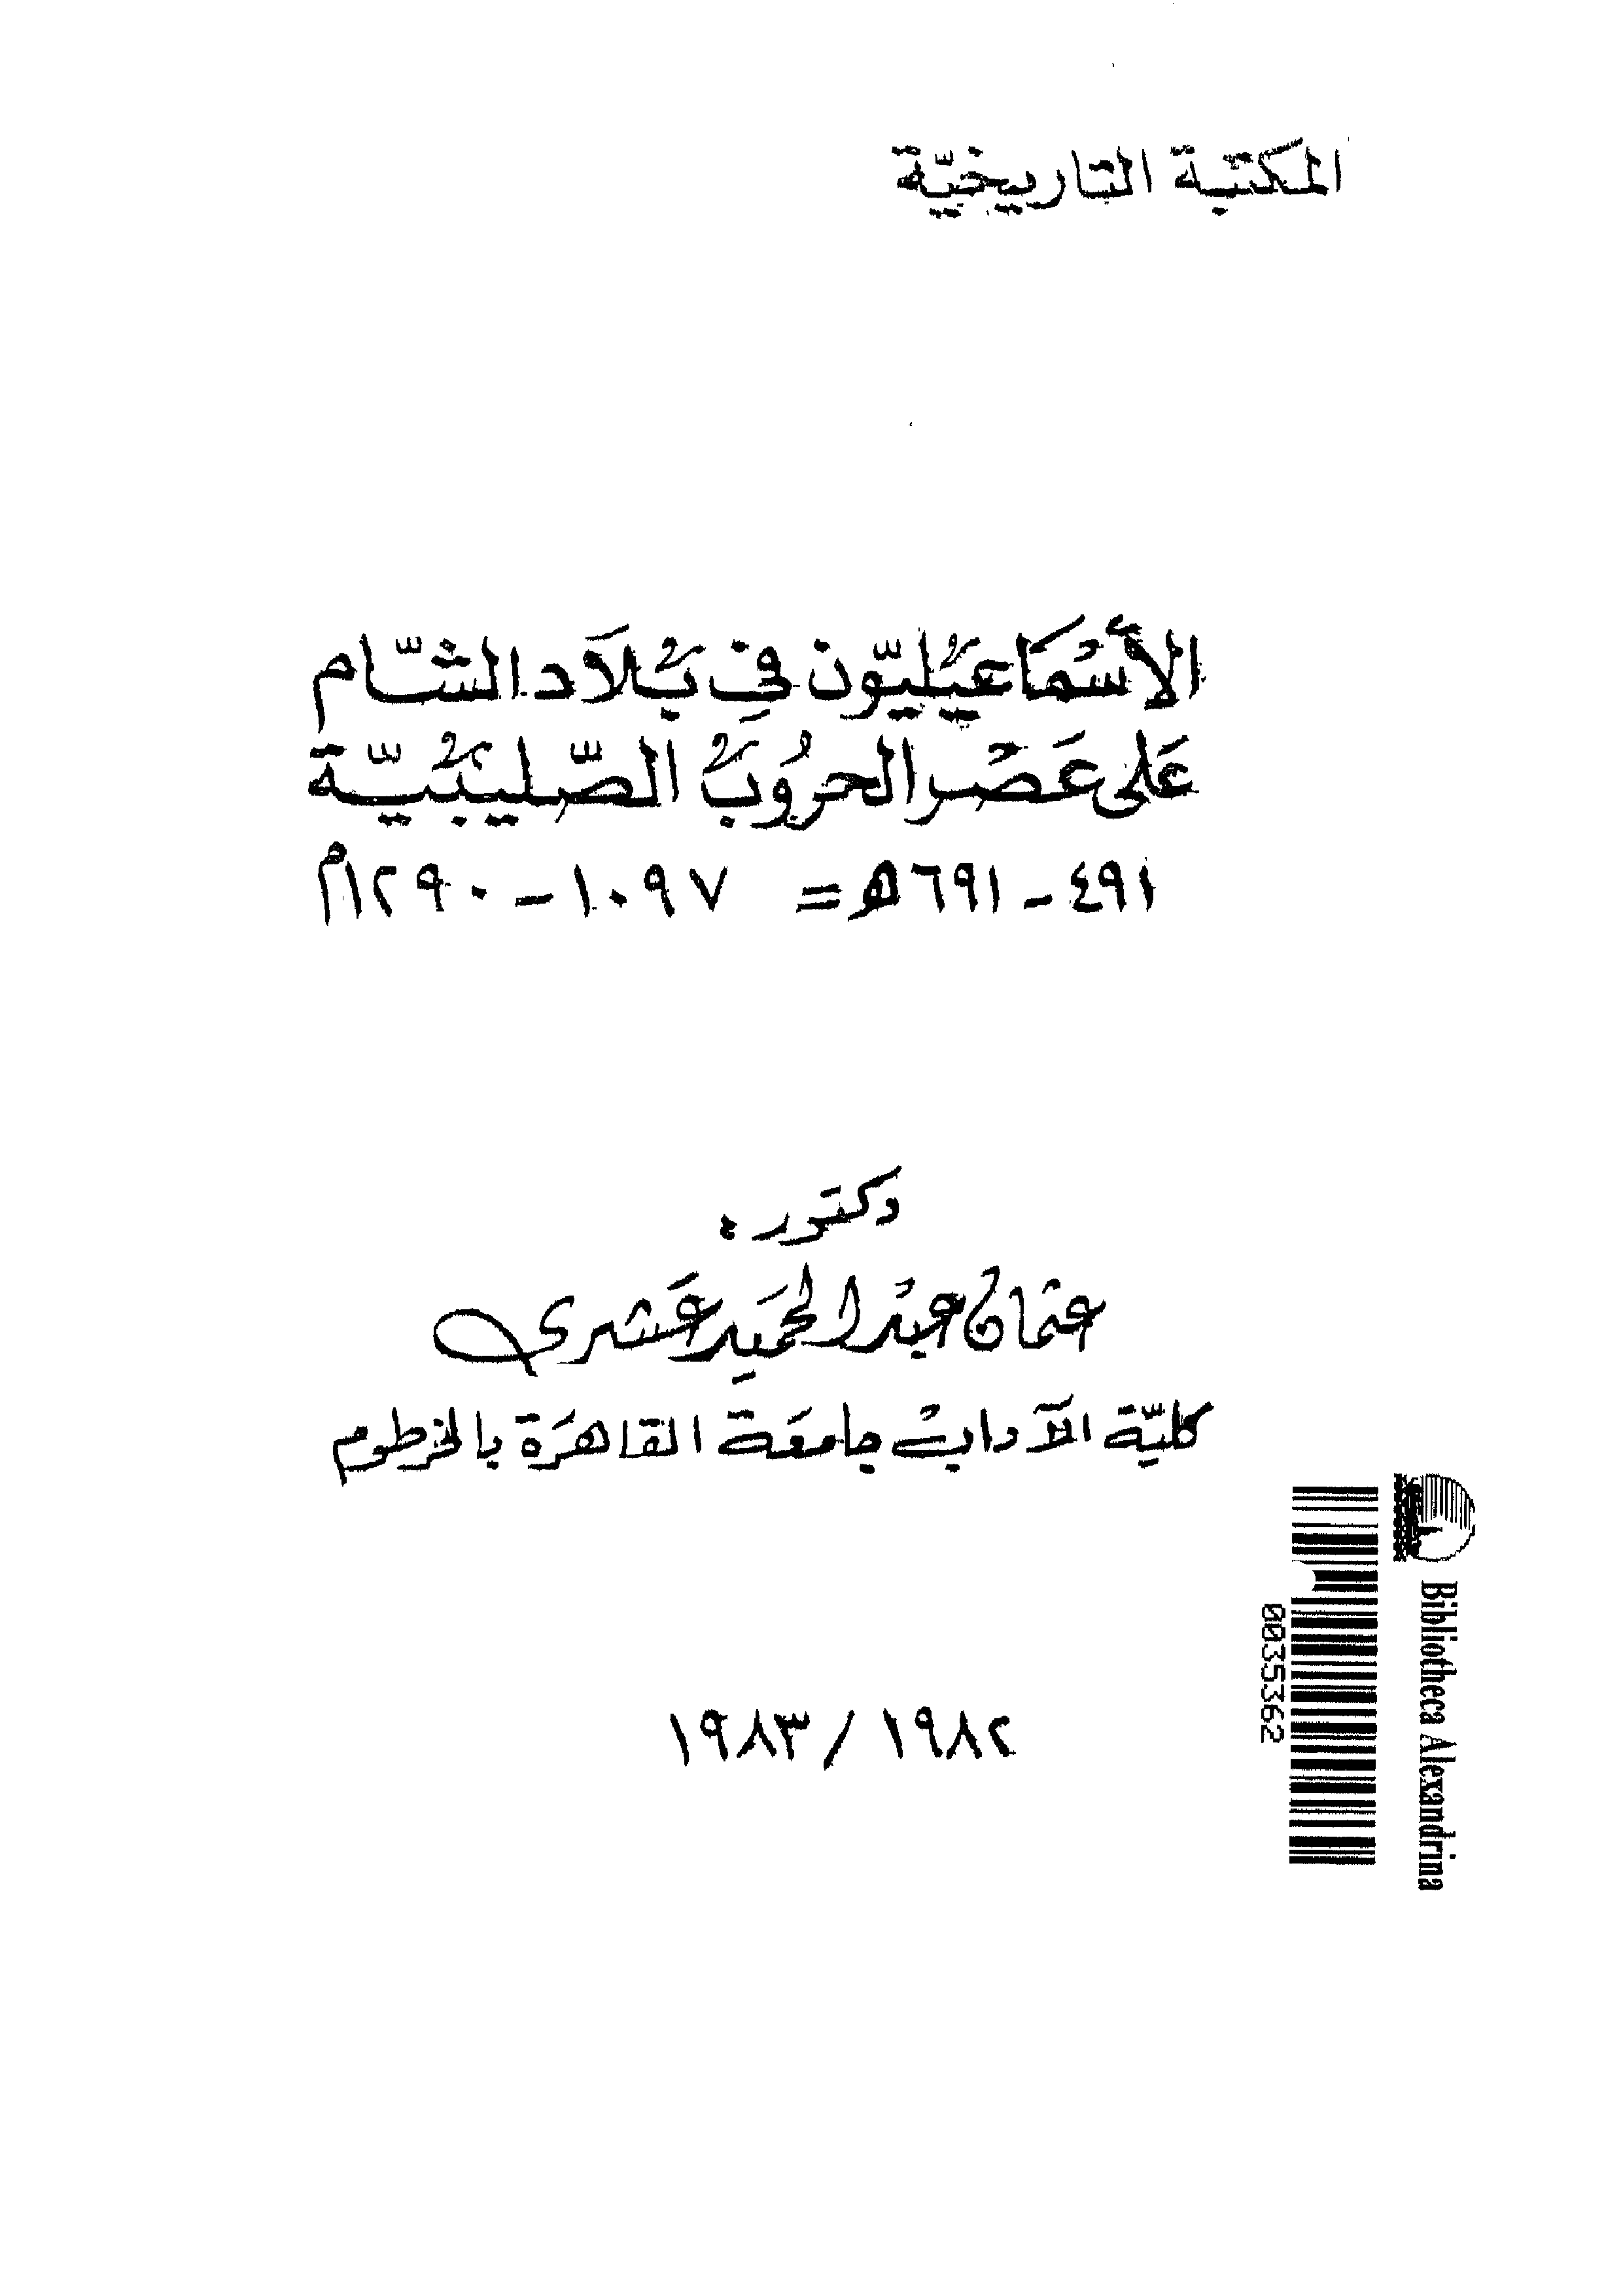 المكتبة التاريخيّة
الأسْمَاعيْليّون في بْلاَد الشّام
عَلى عَصْر الحرُوبْ الصّليبْيّة
٤٩١ - ٦٩١ هـ = ١٠٩٧ - ١٢٩٠ م
دكتور :
عثمان عبْد الحمَيد عَشرى
كليّة الآداب جامعَة القاهرَة بالخرطوم
١٩٨٢ / ١٩٨٣
Bibliotheca Alexandrina
0035362